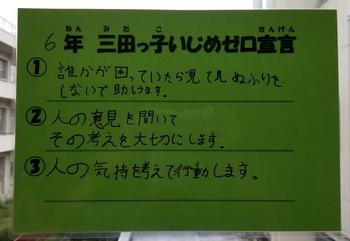 6年 三田っ子いじめゼロ宣言
ねん みたこ せんげん
① 誰かが困っていたら見て見ぬふりを
しないで助けます。
② 人の意見を聞いて
その考えを大切にします。
③ 人の気持を考えて行動します。